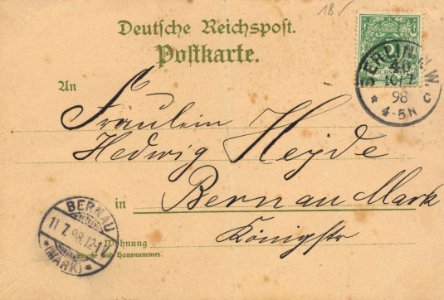 18/
Deutsche Reichspost.
Postkarte.
BERLIN, N.W.
40
10/7
98
* 4-5N c
An
Fräulein
Hedwig Heyde
in Bernau Mark
Königstr
Wohnung
Strasse und Hausnummer.
BERNAU
11.7.98.12-1V
*(MARK)*